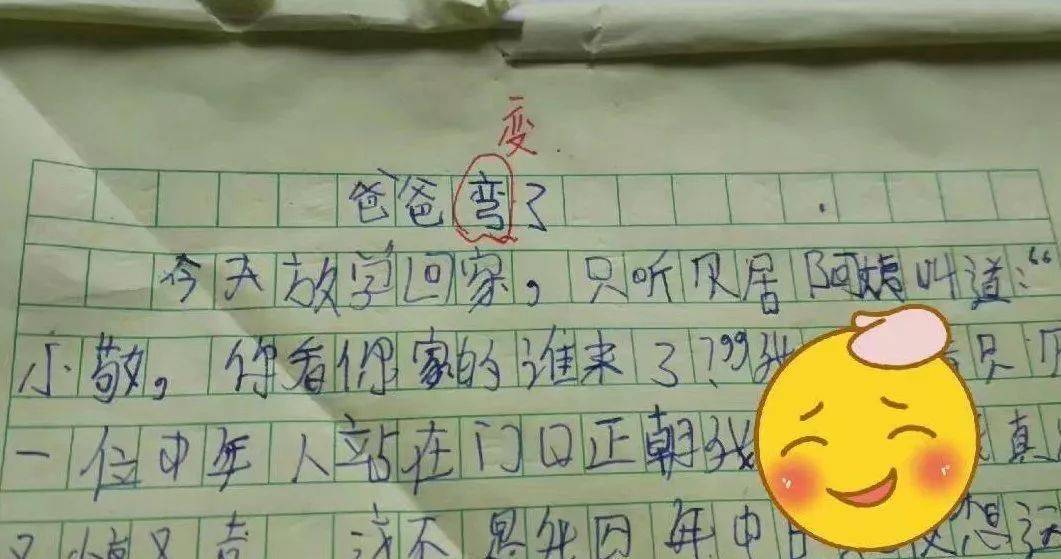 变
爸爸弯了
今天放学回家，只听见居阿姨叫道：“
小敬。你看你家的谁来了？”我 只见
一位中年人站在门口正朝我 真
又 又 这不是 年中日 想